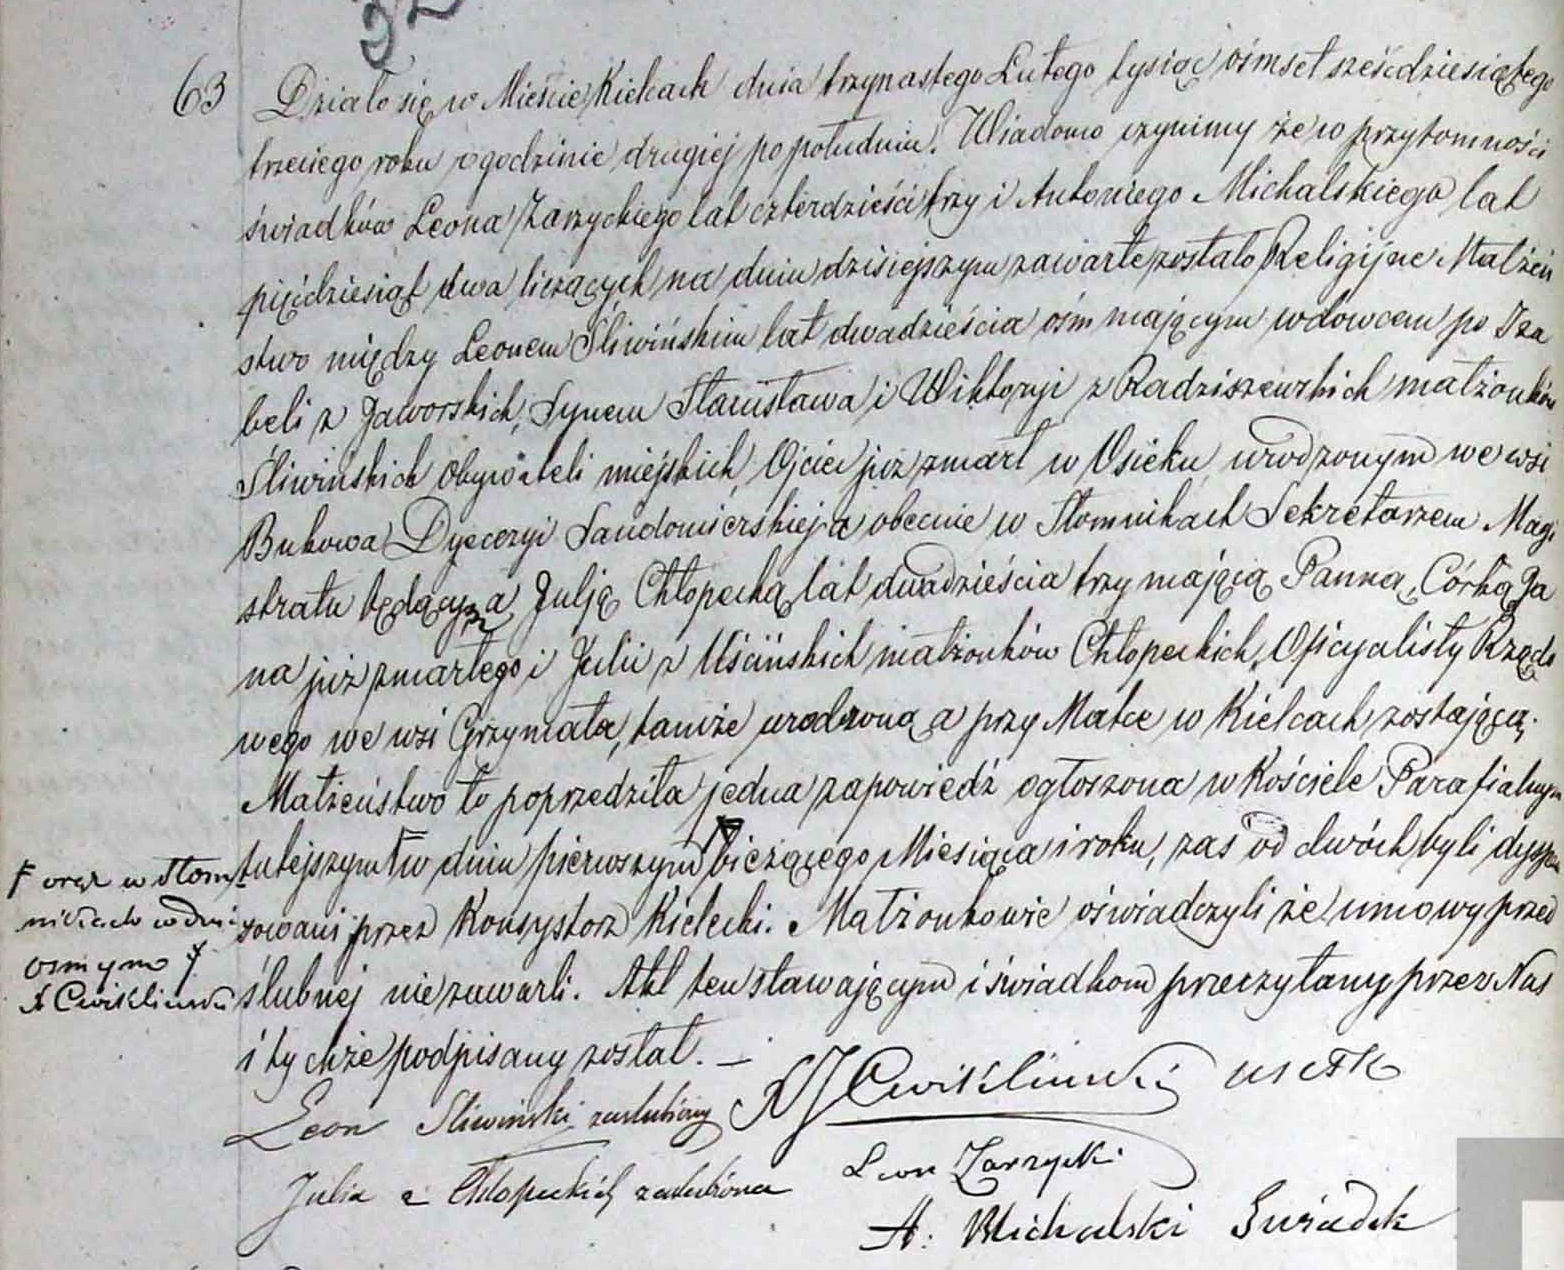 32
63 Działo się w Mieście Kielcach dnia trzynastego Lutego tysiąc ośmset sześćdziesiątego
trzeciego roku o godzinie drugiej po południu. Wiadomo czynimy że w przytomności
świadków Leona Zarzyckiego lat czterdzieści trzy i Antoniego Michalskiego lat
pięćdziesiąt dwa liczących na dniu dzisiejszym zawarte zostało Religijne Małżeń
stwo między Leonem Śliwińskim lat dwadzieścia ośm mającym wdowcem po Iza
beli z Jaworskich, Synem Stanisława i Wiktoryi z Radziszewskich małżonków
Śliwińskich Obywateli miejskich, Ojciec już zmarł w Osieku, urodzonym we wsi
Bukowa Dyecezyi Sandomierskiej a obecnie w Słomnikach Sekretarzem Magi
stratu będącym a Julją Chłopecką lat dwadzieścia trzy mającą Panną, Córką Ja
na już zmarłego i Julii z Uścińskich małżonków Chłopeckich, Oficyalisty Rządo
wego we wsi Grzymała, tamże urodzoną a przy Matce w Kielcach zostającą.
Małżeństwo to poprzedziła jedna zapowiedź ogłoszona w Kościele Parafialnym
tutejszym w dniu pierwszym bieżącego Miesiąca i roku, zaś od dwóch byli dyspen
zowani przez Konsystorz Kielecki. Małżonkowie oświadczyli że umowy przed
ślubnej nie zawarli. Akt ten stawającym i świadkom przeczytany przez Nas
i tychże podpisany został. —
oraz w Słom
nikach w dniu
osmym
A Cwikliński
Cwikliński
Leon Śliwiński zaślubiony
Julia z Chłopeckich zaślubiona
Leon Zarzycki
A. Michalski Świadek